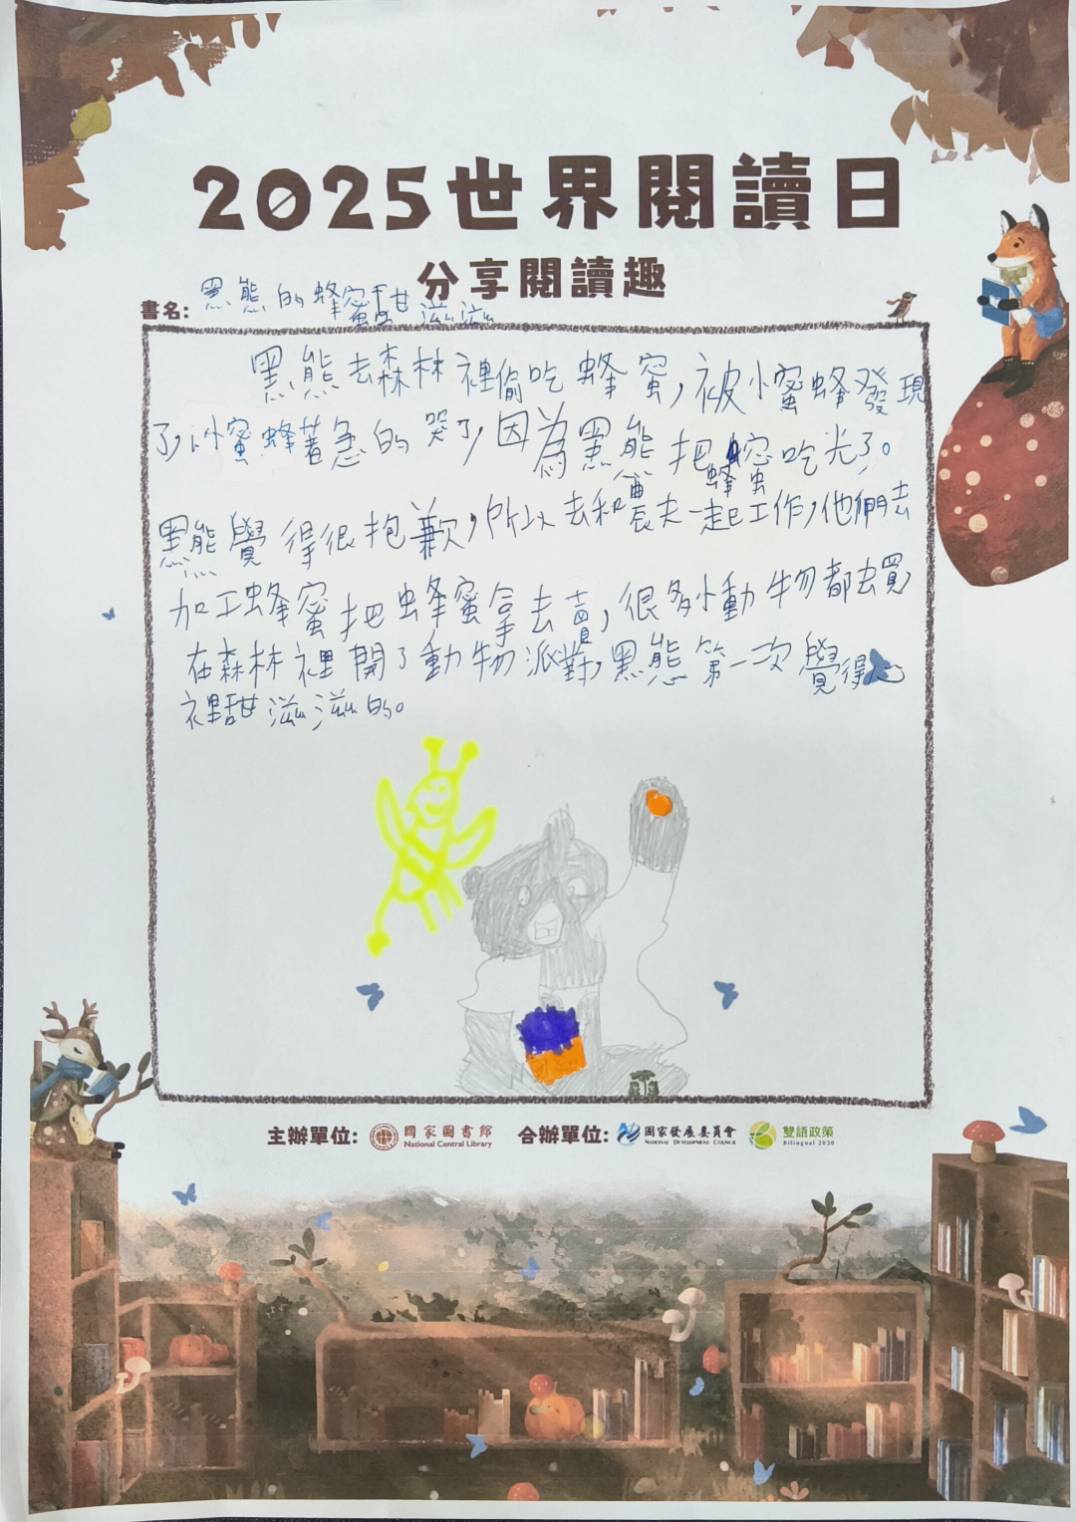 2025世界閱讀日
分享閱讀趣
書名: 黑熊的蜂蜜甜滋滋
黑熊去森林裡偷吃蜂蜜,被小蜜蜂發現
了,小蜜蜂著急的哭了,因為黑熊把蜂蜜吃光了。
黑熊覺得很抱歉,所以去和農夫一起工作,他們去
加工蜂蜜把蜂蜜拿去賣,很多小動物都去買
在森林裡開了動物派對,黑熊第一次覺得心
裡甜滋滋的。
主辦單位: 國家圖書館 National Central Library 合辦單位: 國家發展委員會 National Development Council 雙語政策 Bilingual 2030